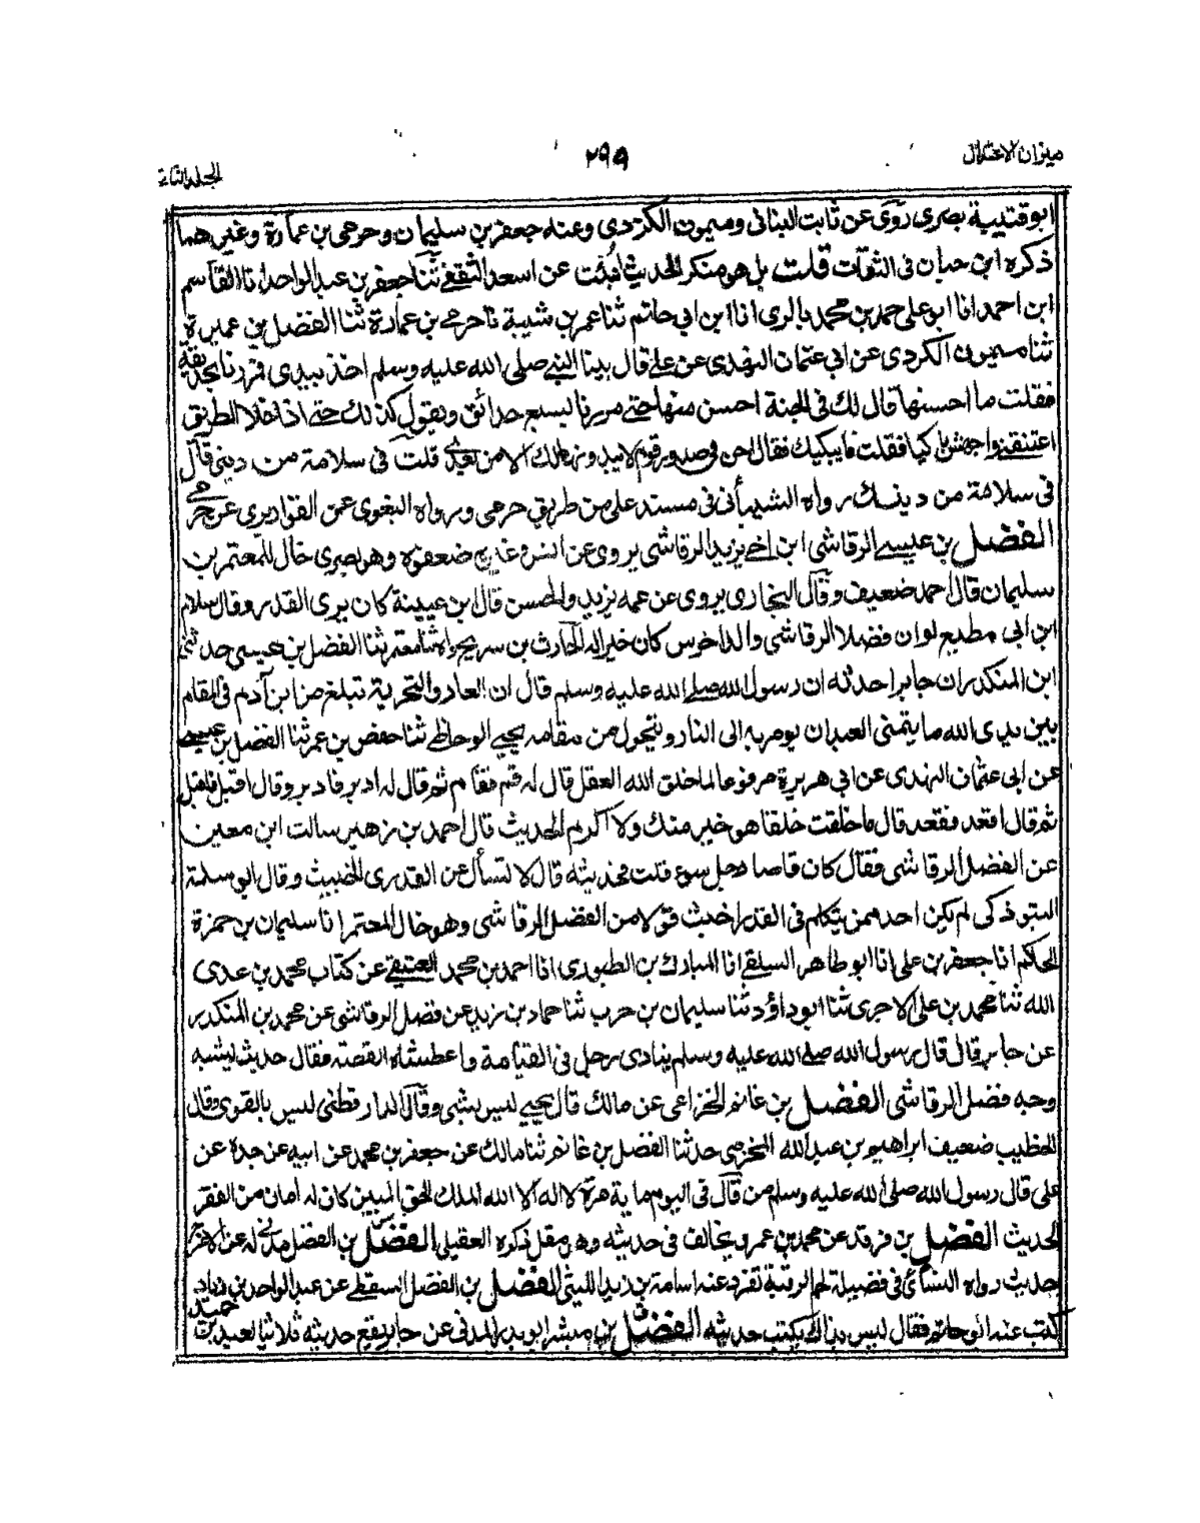 ميزان الاعتدال
٢٩٩
الجلد الثانے
ابو قتيبة بصرى روى عن ثابت البنانى وميمون الكردى وعنه جعفر بن سليمان وحرمى بن عمارة وغيرهما
ذكره ابن حبان فى الثقات قلت بل هو منكر الحديث انبئت عن اسعد الثقفے ثنا جعفر بن عبد الواحد انا القاسم
ابن احمد انا ابو على حمد بن محمد بالرى انا ابن ابى حاتم ثنا عمر بن شيبة نا حرمے بن عمارة ثنا الفضل بن عميرة
ثنا ميمون الكردى عن ابى عثمان النهدى عن علے قال بينا النبے صلى الله عليه وسلم اخذ بيدى فمررنا بحديقة
فقلت ما احسنها قال لك فى الجنة احسن منها حتے مررنا بسبع حدائق ويقول كذلك حتے اذا خلا الطريق
اعتنقنے واجهش باكيا فقلت ما يبكيك فقال احن فى صدور قوم لا يبدونها لك الا من بعدى قلت فى سلامة من دينى قال
فى سلامة من دينك رواه النسائى فى مسند على من طريق حرمى ورواه البغوى عن القواريرى عن حرمے
الفضل بن عيسے الرقاشى ابن اخے يزيد الرقاشى يروى عن انس وغيره ضعفوه وهو بصرى خال للمعتمر بن
سليمان قال احمد ضعيف وقال البخارى يروى عن عمه يزيد والحسن قال ابن عيينة كان يرى القدر وقال سلام
ابن ابى مطيع لو ان فضلا الرقاشى ولد اخرس كان خيرا له الحارث بن سريج واه ثنا معتمر ثنا الفضل بن عيسى حدثنى
ابن المنكدر ان جابرا حدثه ان رسول الله صلے الله عليه وسلم قال ان العار والتخزية تبلغ من ابن آدم فى المقام
بين يدى الله ما يتمنى العبد ان يومر به الى النار ويتحول من مقامه يحيے الوحاظے ثنا حفص بن عمر ثنا الفضل بن عيسے
عن ابى عثمان النهدى عن ابى هريرة مرفوعا لما خلق الله العقل قال له قم فقام ثم قال له ادبر فادبر وقال اقبل فاقبل
ثم قال اقعد فقعد قال ما خلقت خلقا هو خير منك ولا اكرم الحديث قال احمد بن زهير سالت ابن معين
عن الفضل الرقاشى فقال كان قاصا رجل سوء قلت فحديثه قال لا تسأل عن القدرى الخبيث وقال ابو سلمة
التبوذكى لم يكن احد ممن يتكلم فى القدر اخبث قولا من الفضل الرقاشى وهو خال المعتمر انا سليمان بن حمزة
الحاكم انا جعفر بن على انا ابو طاهر السلفے انا المبارك بن الطيورى انا احمد بن محمد العتيقے عن كتاب محمد بن عدى
الله ثنا محمد بن على الاجرى ثنا ابو داؤد ثنا سليمان بن حرب ثنا حماد بن زيد عن فضل الرقاشى عن محمد بن المنكدر
عن جابر قال قال رسول الله صلے الله عليه وسلم ينادى رجل فى القيامة واعطشاه القصة فقال حديث يشبه
وجه فضل الرقاشى الفضل بن غانم الخزاعى عن مالك قال يحيے ليس بشى وقال الدارقطنى ليس بالقوى وقال
الخطيب ضعيف ابراهيم بن عبد الله المخرمى حدثنا الفضل بن غانم ثنا مالك عن جعفر بن محمد عن ابيه عن جده عن
على قال رسول الله صلى الله عليه وسلم من قال فى اليوم ماية مرة لا اله الا الله الملك الحق المبين كان له امان من الفقر
الحديث الفضل بن فرقد عن محمد بن عمرو يخالف فى حديثه وهو مقل ذكره العقيلى الفضل بن الفضل مدنے له عن الاعرج
حديث رواه النسائى فى فضيلة لحم الرقبة تفرد عنه اسامة بن زيد الليثى الفضل بن الفضل السقطے عن عبد الواحد بن زياد
كتب عنه ابو حاتم فقال ليس بذاك يكتب حديثه الفضل بن مبشر ابو بكر المدنى عن جابر يقع حديثه ثلاثيا لعبد بن حميد